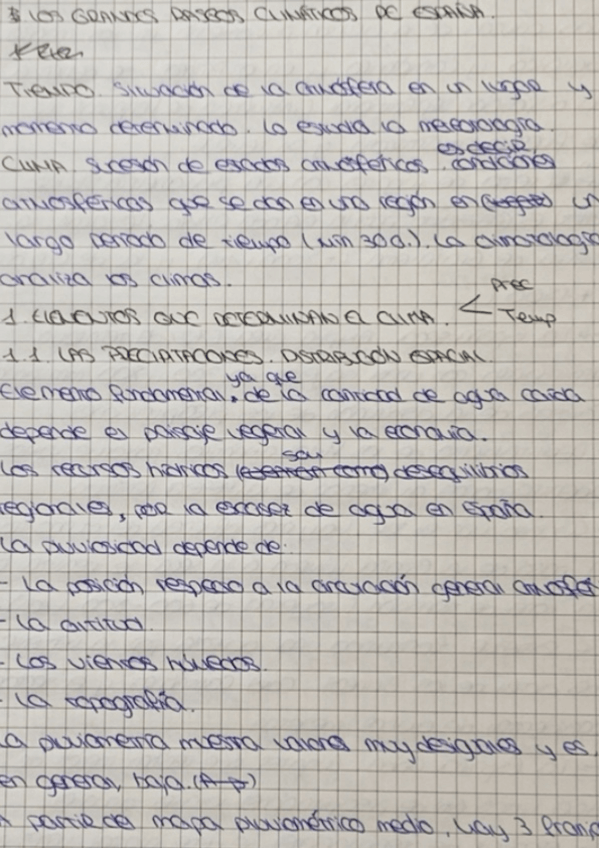 LOS GRANDES RASGOS CLIMÁTICOS DE ESPAÑA.
TIEMPO. Situación de la atmósfera en un lugar y
momento determinado. Lo estudia la meteorología.
CLIMA. Sucesión de estados atmosféricos. es decir, condiciones
atmosféricas que se dan en una región en un
largo periodo de tiempo (min 30a.). La climatología
analiza los climas.
1. ELEMENTOS QUE DETERMINAN EL CLIMA. < Prec Temp
1.1. LAS PRECIPITACIONES. DISTRIBUCIÓN ESPACIAL.
Elemento fundamental, ya que de la cantidad de agua caída
depende el paisaje vegetal y la economía.
Los recursos hídricos son desequilibrios
regionales, por la escasez de agua en España.
La pluviosidad depende de:
- La posición respecto a la circulación general atmosfér
- La altitud.
- Los vientos húmedos.
- La topografía.
La pluviometría muestra valores muy desiguales y es,
en general, baja.
A partir del mapa pluviométrico medio, hay 3 franj